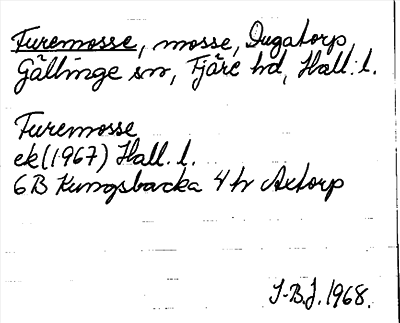 Furemosse, mosse, Dugatorp,
Gällinge sn, Fjäre hd, Hall. l.
Furemosse
ek (1967) Hall. l.
6B Kungsbacka 4 h Axtorp
J-B.J. 1968.